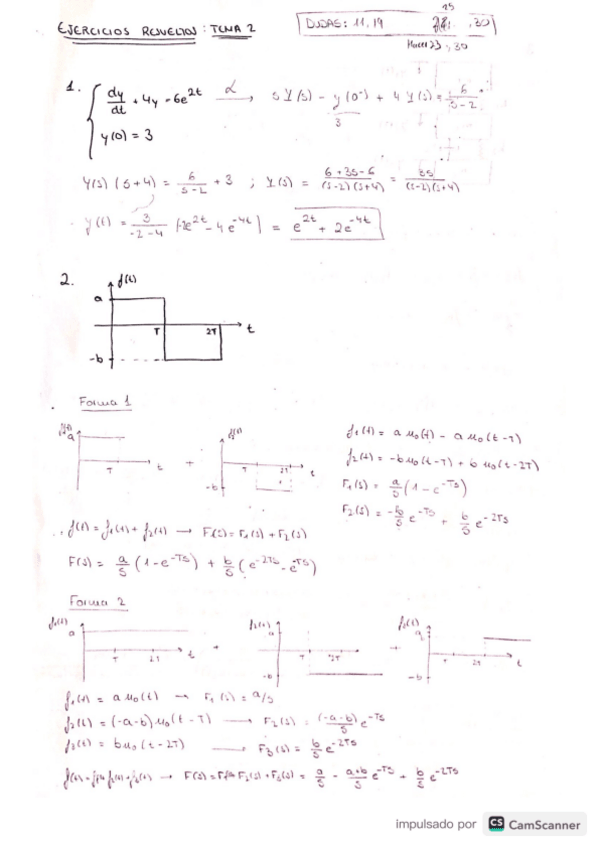 EJERCICIOS RESUELTOS: TEMA 2
DUDAS: 11, 19 , 30
25
Hacer 23, 30
1. dy/dt + 4y = 6e^{2t} L→ s Y(s) - y(0^-) + 4 Y(s) = 6/(s-2)
3
y(0) = 3
Y(s) (s+4) = 6/(s-2) + 3 ; Y(s) = (6+3s-6)/((s-2)(s+4)) = 3s/((s-2)(s+4))
y(t) = 3/(-2-4) [-2e^{2t} - 4e^{-4t}] = e^{2t} + 2e^{-4t}
2. f(t)
a
T 2T t
-b
Forma 1
f(t) f(t)
a
T t + T 2T t
-b
f1(t) = a u0(t) - a u0(t-T)
f2(t) = -b u0(t-T) + b u0(t-2T)
F1(s) = a/s (1 - e^{-Ts})
F2(s) = -b/s e^{-Ts} + b/s e^{-2Ts}
f(t) = f1(t) + f2(t) → F(s) = F1(s) + F2(s)
F(s) = a/s (1 - e^{-Ts}) + b/s (e^{-2Ts} - e^{-Ts})
Forma 2
f1(t) f2(t) f3(t)
a a a
T 2T + T 2T + T 2T t
-b -b
f1(t) = a u0(t) → F1(s) = a/s
f2(t) = (-a-b) u0(t-T) → F2(s) = (-a-b)/s e^{-Ts}
f3(t) = b u0(t-2T) → F3(s) = b/s e^{-2Ts}
f(t) = f1(t) + f2(t) + f3(t) → F(s) = F1(s) + F2(s) + F3(s) = a/s - (a+b)/s e^{-Ts} + b/s e^{-2Ts}
impulsado por CS CamScanner